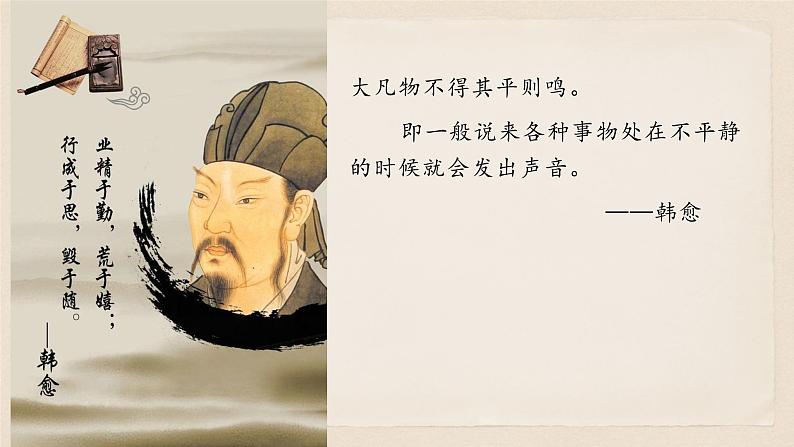 业精于勤，荒于嬉；
行成于思，毁于随。
——韩愈
大凡物不得其平则鸣。
即一般说来各种事物处在不平静
的时候就会发出声音。
——韩愈